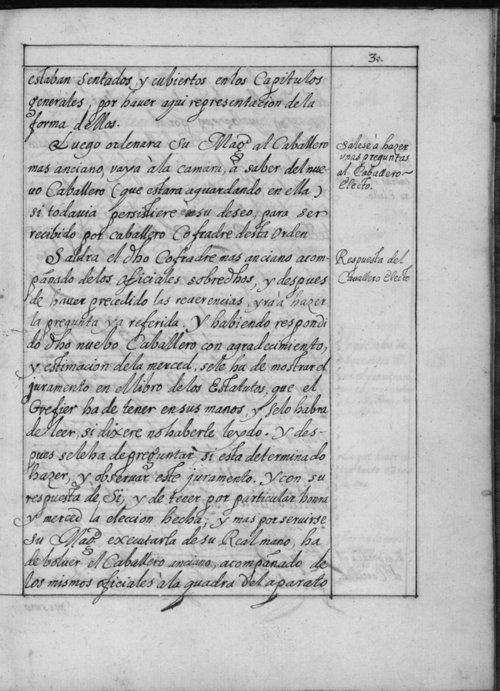 3º.
estaban sentados, y cubiertos en los Capitulos
generales, por haver aqui representacion de la
forma dellos.
Luego ordenara su Magd. al Caballero
mas anciano, vaya à la camara, à saber del nue-
vo Caballero (que estara aguardando en ella)
si todavia persistiere en su deseo, para ser
recibido por caballero Cofradre desta Orden
Salese à hazer
unas preguntas
al Caballero
Electo.
Saldra el dho Cofradre mas anciano acom-
pañado de los oficiales sobredhos, y despues
de haver precedido las reverencias, yrà à hazer
la pregunta ya referida. Y habiendo respondi-
do dho nuebo Caballero con agradecimiento,
y estimacion de la merced, sele ha de mostrar el
juramento en el libro de los Estatutos, que el
Grefier ha de tener en sus manos, y selo habra
de leer, si dixere no haberle leydo. Y des-
pues sele ha de preguntar si esta determinado
hazer, y observar este juramento. Y con su
respuesta de Si, y de tener por particular honra
y merced la eleccion hecha, y mas por servirse
su Magd. executarla de su Real mano, ha
de bolver el Caballero anciano, acompañado de
los mismos oficiales à la quadra del aparato
Respuesta del
Caballero Electo